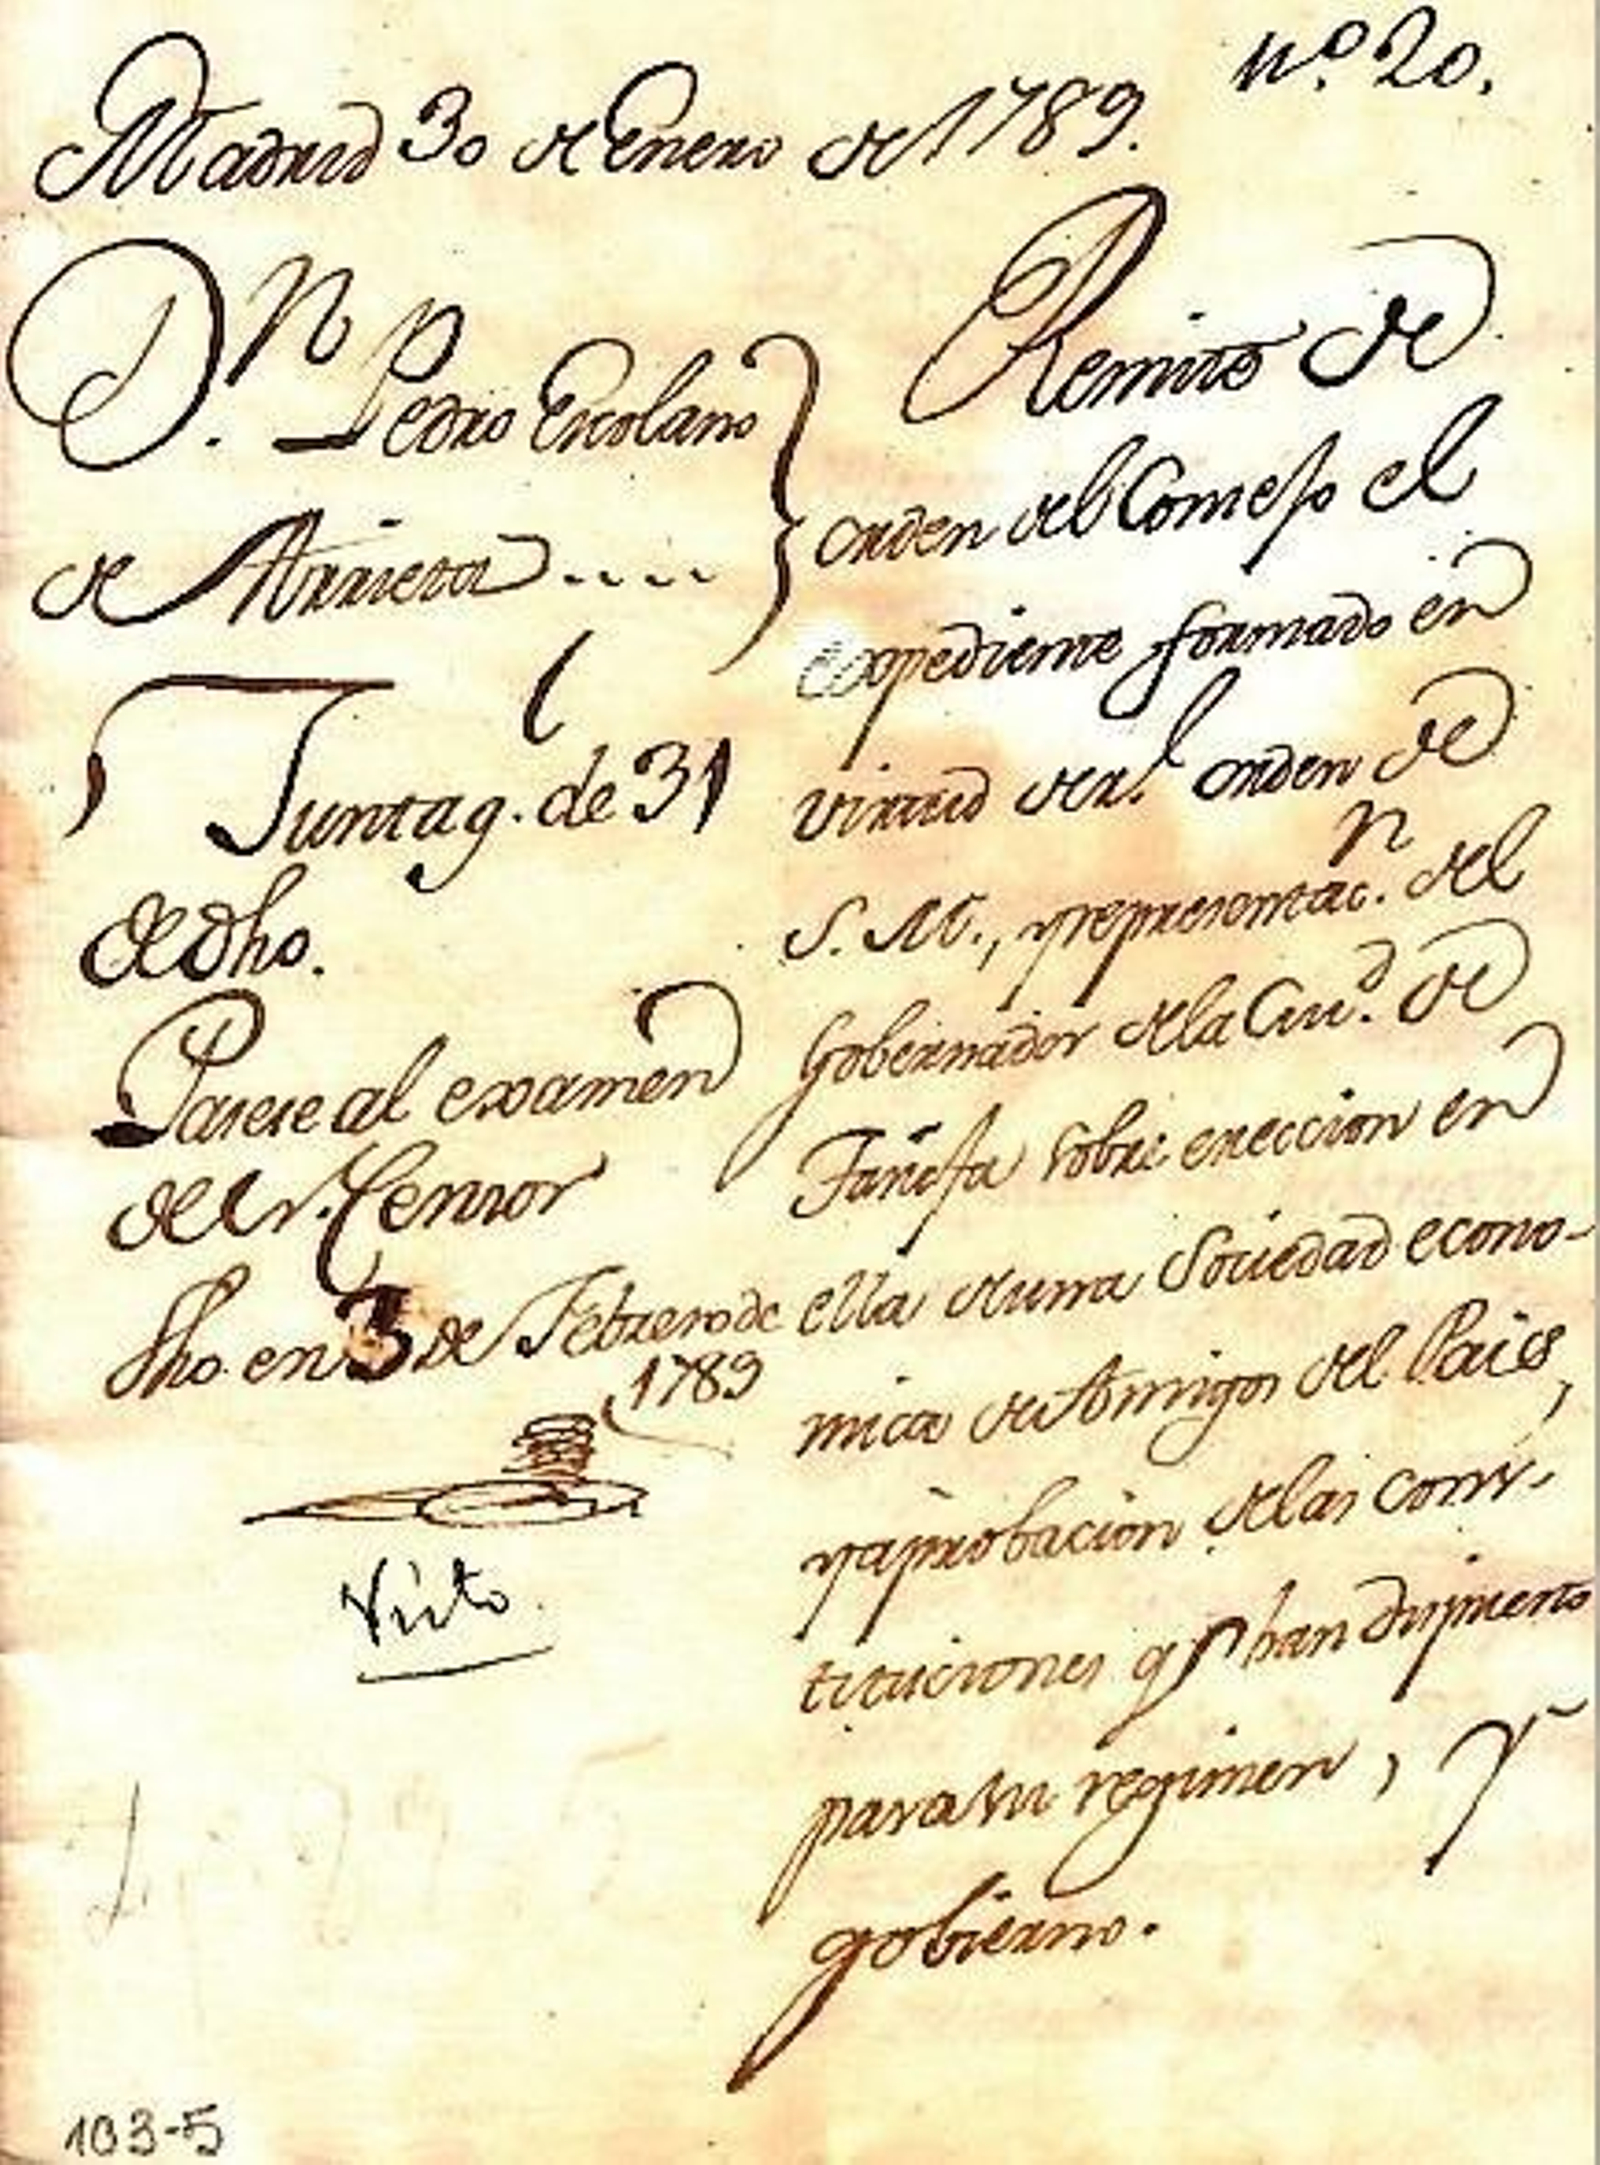 nº. 20.
Madrid 30 de Enero de 1789.
D.n Pedro Escolano
de Arrieta....
Junta g. de 31
de dho.
Pasese al examen
del Sr. Censor
fho. en 3 de Febrero de
1789
Visto
Remite de
orden del Consejo el
expediente formado en
virtud de Rl. orden de
S. M., y representac.n del
Gobernador de la Ciu.d de
Tarifa sobre ereccion en
ella de una Sociedad econo-
mica de Amigos del Pais,
y aprobacion de las cons-
tituciones q.e han dispuesto
para su regimen, y
gobierno.
103-5